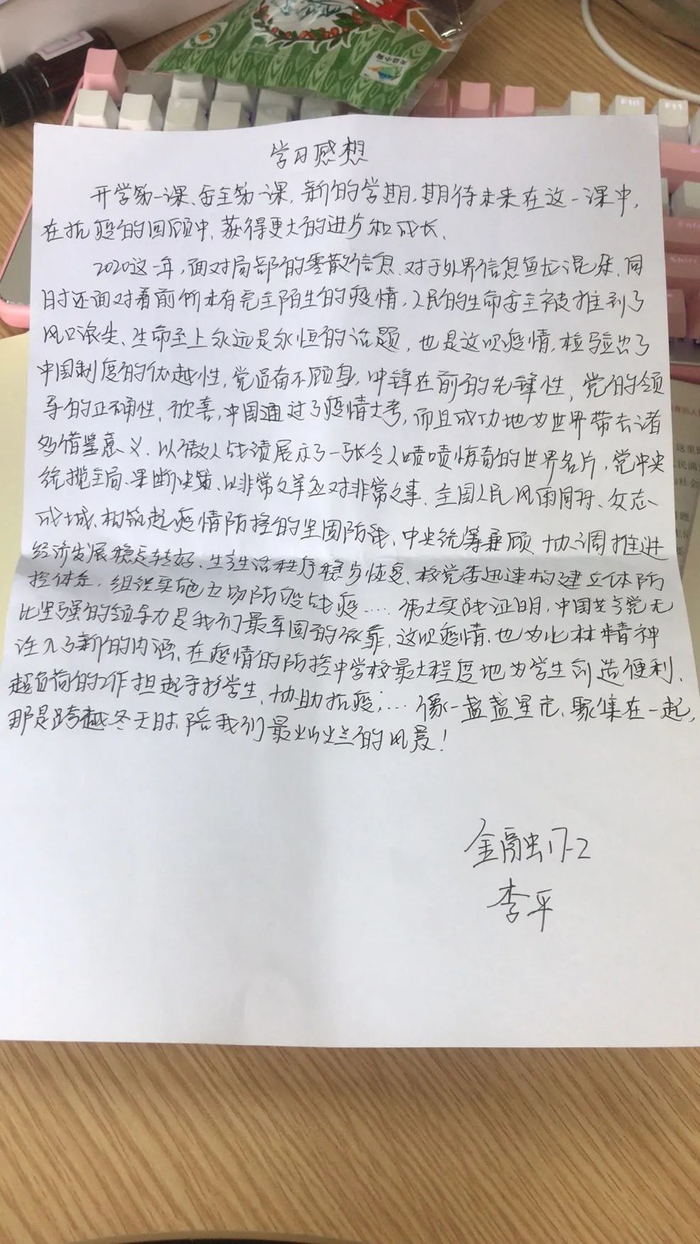 学习感想
开学第一课、安全第一课,新的学期,期待未来在这一课中,
在抗疫的回顾中,获得更大的进步和成长、
2020这一年,面对局部的零散信息、对于外界信息鱼龙混杂、同
时还面对着前所未有完全陌生的疫情,人民的生命安全被推到了
风口浪尖、生命至上永远是永恒的话题,也是这次疫情,检验出了
中国制度的优越性,党员奋不顾身,冲锋在前的先锋性,党的领
导的正确性,欣喜,中国通过了疫情大考,而且成功地为世界带去诸
多借鉴意义、以傲人战绩展示了一张令人啧啧惊奇的世界名片,党中央
统揽全局、果断决策、以非常之举应对非常之事、全国人民风雨同舟、众志
成城、构筑起疫情防控的坚固防线,中央统筹兼顾、协调推进
经济发展稳定转好、生产生活秩序稳步恢复、校党委迅速构建立体防
控体系,组织实施立场防疫战疫....伟大实践证明,中国共产党无
比坚强的领导力是我们最牢固的依靠,这次疫情,也为北林精神
注入了新的内涵,在疫情的防控中学校最大程度地为学生创造便利、
超负荷的工作担起手护学生、协助抗疫;...像一盏盏星光、聚集在一起,
那是跨越冬天时,陪我们最灿烂的风景!
金融17-2
李平